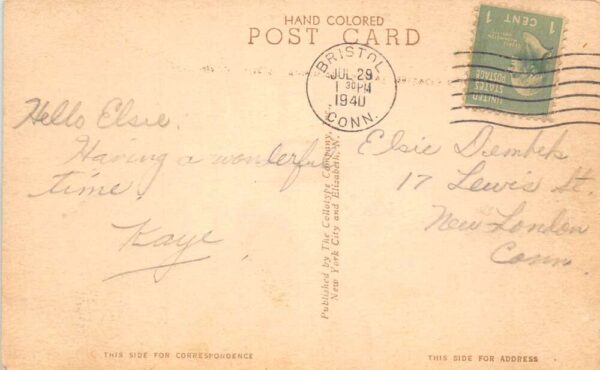 HAND COLORED
POST CARD
1 CENT 1
UNITED
STATES
POSTAGE
BRISTOL
JUL 29
1 30 PM
1940
CONN.
Hello Elsie.
Having a wonderful
time.
Kaye
Published by The Collotype Company,
New York City and Elizabeth, N.
Elsie Dembek
17 Lewis St.
New London
Conn.
THIS SIDE FOR CORRESPONDENCE
THIS SIDE FOR ADDRESS